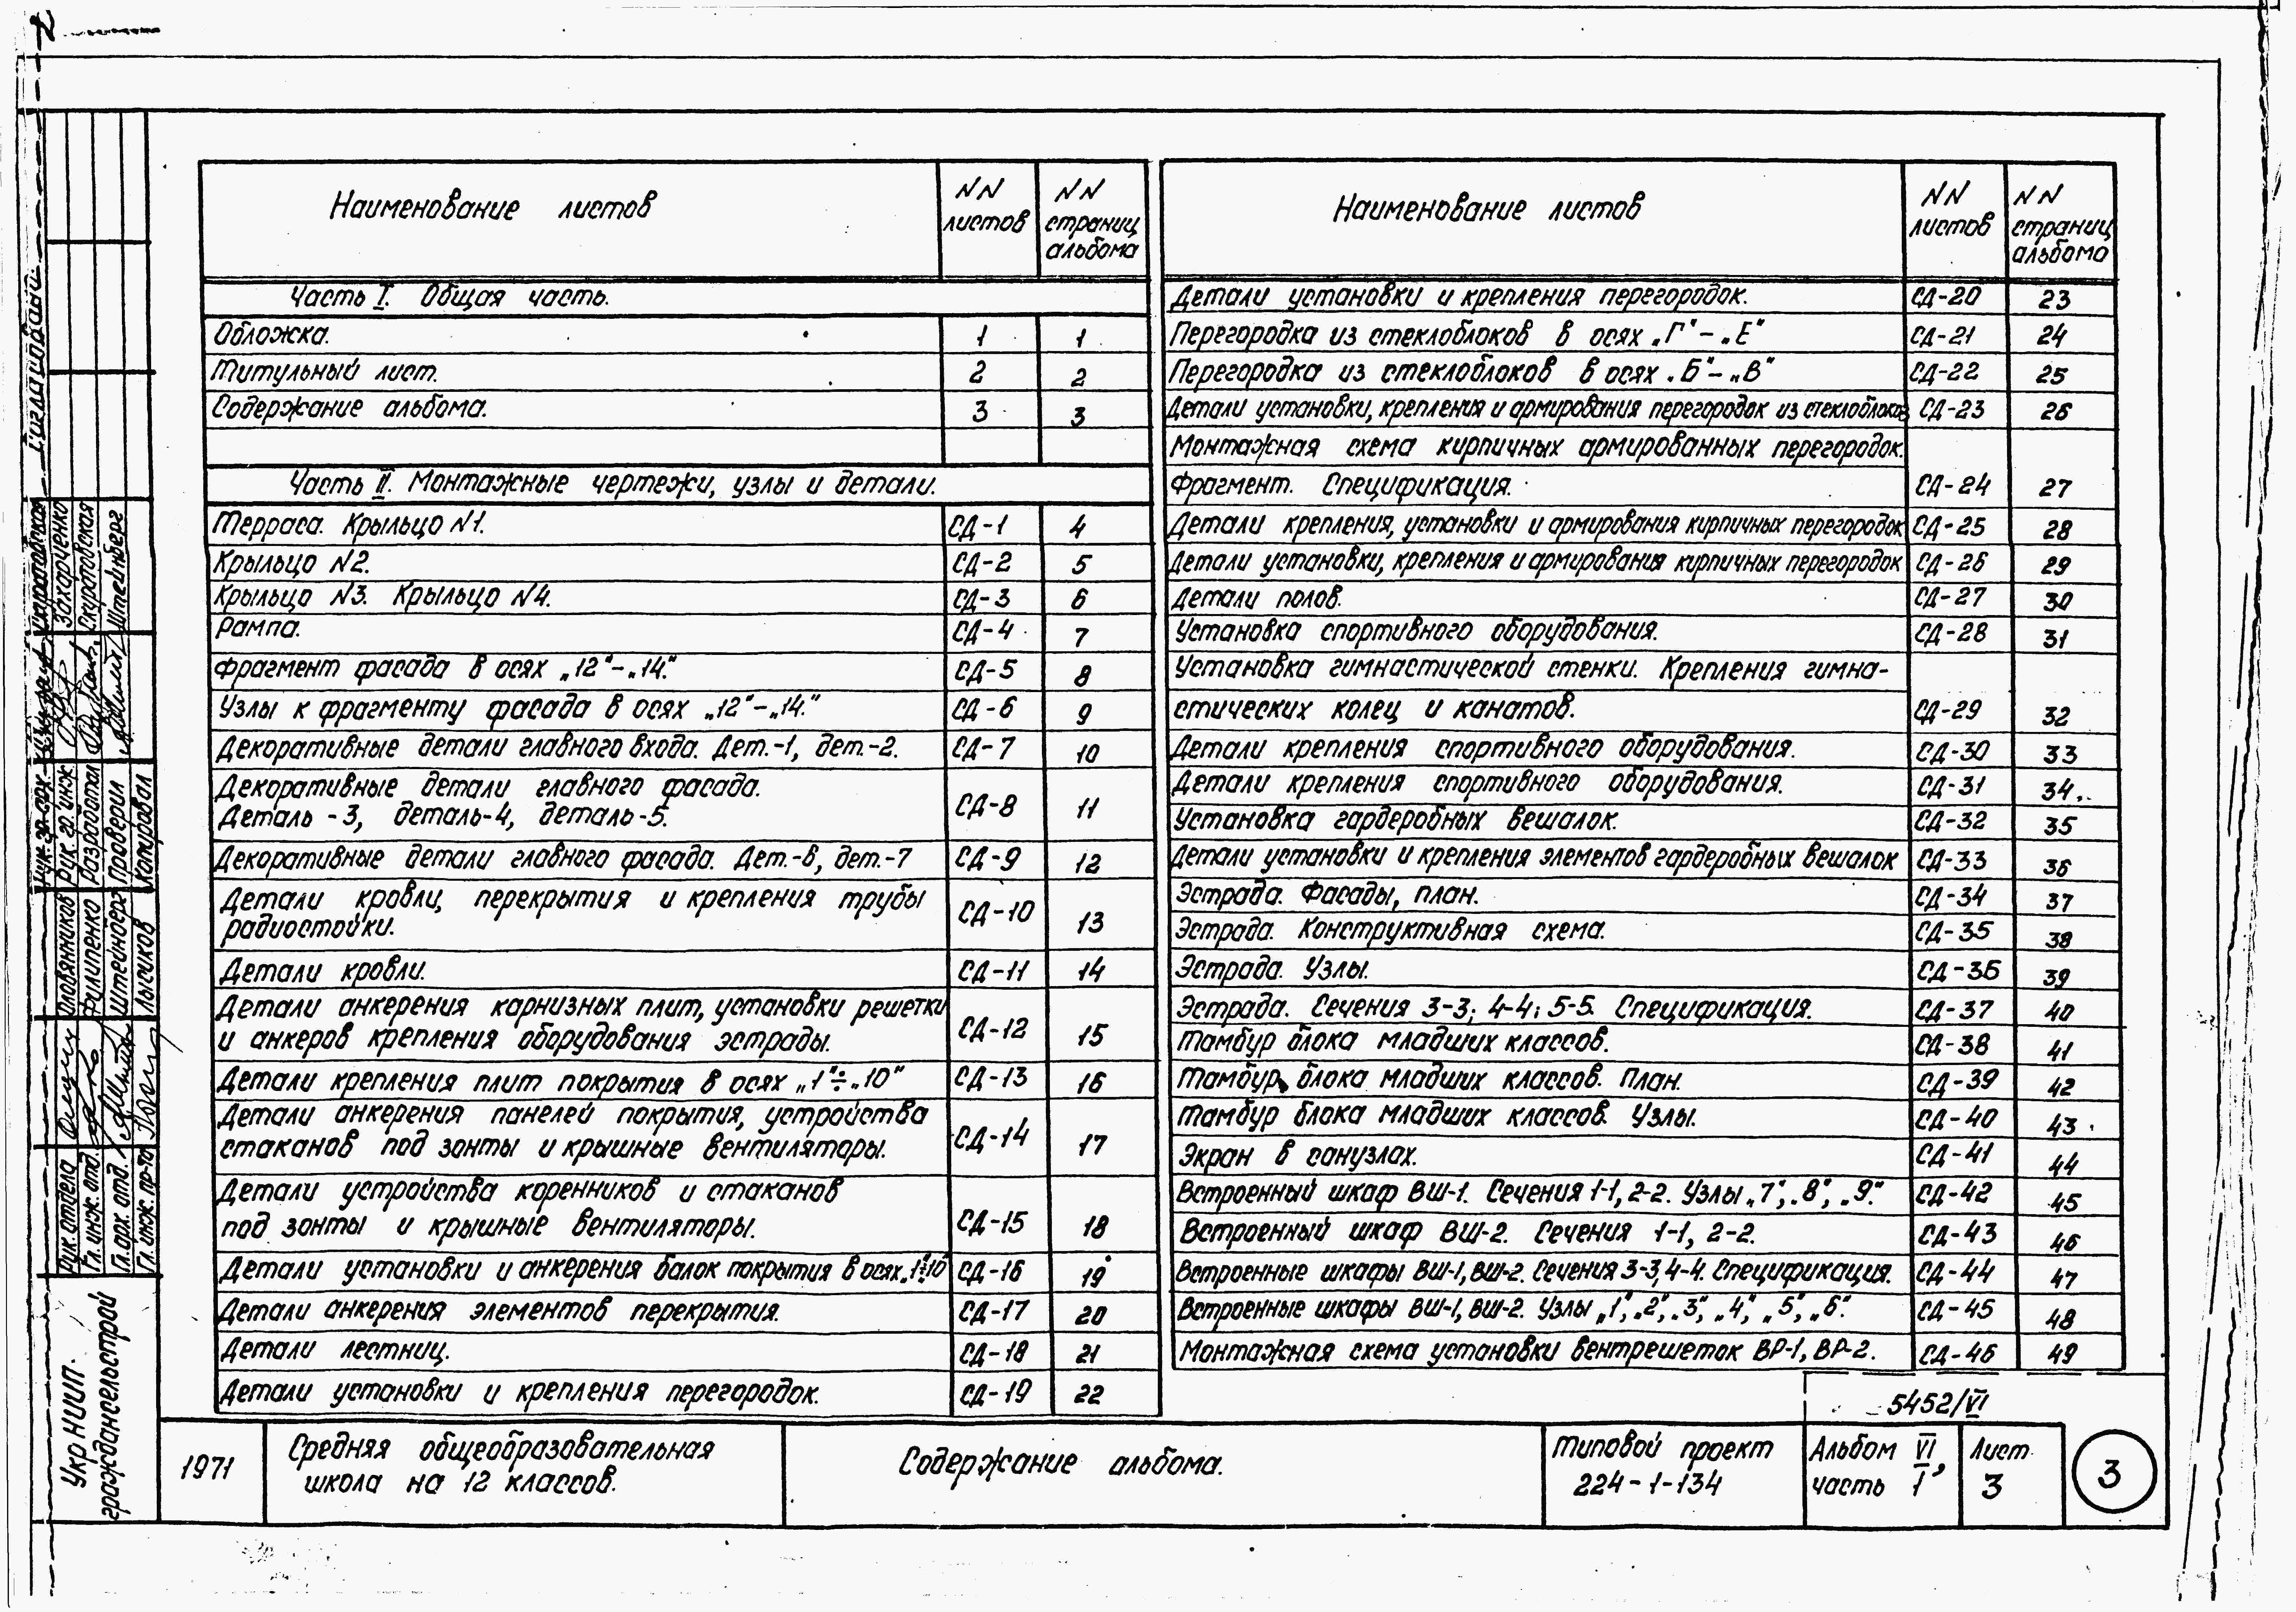 Наименование листов
NN листов
NN страниц альбома
Часть I. Общая часть.
Обложка. 1 1
Титульный лист. 2 2
Содержание альбома. 3 3
Часть II. Монтажные чертежи, узлы и детали.
Терраса. Крыльцо N1. СД-1 4
Крыльцо N2. СД-2 5
Крыльцо N3. Крыльцо N4. СД-3 6
Рампа. СД-4 7
Фрагмент фасада в осях „12"-„14." СД-5 8
Узлы к фрагменту фасада в осях „12"-„14." СД-6 9
Декоративные детали главного входа. Дет.-1, дет.-2. СД-7 10
Декоративные детали главного фасада.
Деталь -3, деталь-4, деталь-5. СД-8 11
Декоративные детали главного фасада. Дет.-6, дет.-7 СД-9 12
Детали кровли, перекрытия и крепления трубы
радиостойки. СД-10 13
Детали кровли. СД-11 14
Детали анкерения карнизных плит, установки решетки
и анкеров крепления оборудования эстрады. СД-12 15
Детали крепления плит покрытия в осях „1"÷„10" СД-13 16
Детали анкерения панелей покрытия, устройства
стаканов под зонты и крышные вентиляторы. СД-14 17
Детали устройства коренников и стаканов
под зонты и крышные вентиляторы. СД-15 18
Детали установки и анкерения балок покрытия в осях „1"÷„10" СД-16 19
Детали анкерения элементов перекрытия. СД-17 20
Детали лестниц. СД-18 21
Детали установки и крепления перегородок. СД-19 22
Наименование листов
NN листов
NN страниц альбома
Детали установки и крепления перегородок. СД-20 23
Перегородка из стеклоблоков в осях „Г"-„Е" СД-21 24
Перегородка из стеклоблоков в осях „Б"-„В" СД-22 25
Детали установки, крепления и армирования перегородок из стеклоблоков СД-23 26
Монтажная схема кирпичных армированных перегородок.
Фрагмент. Спецификация. СД-24 27
Детали крепления, установки и армирования кирпичных перегородок СД-25 28
Детали установки, крепления и армирования кирпичных перегородок СД-26 29
Детали полов. СД-27 30
Установка спортивного оборудования. СД-28 31
Установка гимнастической стенки. Крепления гимна-
стических колец и канатов. СД-29 32
Детали крепления спортивного оборудования. СД-30 33
Детали крепления спортивного оборудования. СД-31 34.
Установка гардеробных вешалок. СД-32 35
Детали установки и крепления элементов гардеробных вешалок СД-33 36
Эстрада. Фасады, план. СД-34 37
Эстрада. Конструктивная схема. СД-35 38
Эстрада. Узлы. СД-36 39
Эстрада. Сечения 3-3; 4-4; 5-5. Спецификация. СД-37 40
Тамбур блока младших классов. СД-38 41
Тамбур блока младших классов. План. СД-39 42
Тамбур блока младших классов. Узлы. СД-40 43
Экран в санузлах. СД-41 44
Встроенный шкаф ВШ-1. Сечения 1-1, 2-2. Узлы „7", „8", „9." СД-42 45
Встроенный шкаф ВШ-2. Сечения 1-1, 2-2. СД-43 46
Встроенные шкафы ВШ-1, ВШ-2. Сечения 3-3, 4-4. Спецификация. СД-44 47
Встроенные шкафы ВШ-1, ВШ-2. Узлы „1", „2", „3", „4", „5", „6". СД-45 48
Монтажная схема установки вентрешеток ВР-1, ВР-2. СД-46 49
5452/VI
1971
Средняя общеобразовательная
школа на 12 классов.
Содержание альбома.
Типовой проект
224-1-134
Альбом VI,
часть I
Лист
3
3
УкрНИИП-
граждансельстрой
Рук. отдела
Гл. инж. отд.
Гл. арх. отд.
Гл. инж. пр-та
Оловянников
Филипенко
Штейнберг
Лысиков
Рук. гр. арх.
Рук. гр. инж
Разработал
Проверил
Копировал
Скраповская
Захарченко
Скраповская
Штейнберг